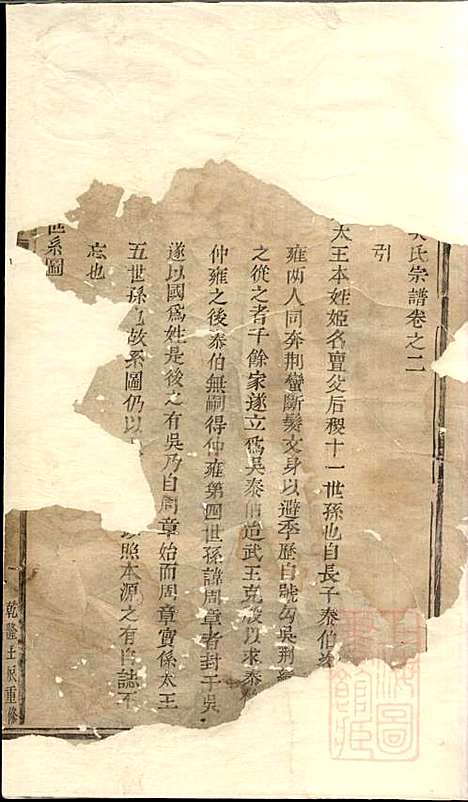 氏宗譜卷之二
引
太王本姓姬名亶父后稷十一世孫也自長子泰伯
雍兩人同奔荊蠻斷髮文身以避季歷自號勾吳荊
之從之者千餘家遂立為吳泰伯迨武王克殷以求泰
仲雍之後泰伯無嗣得仲雍第四世孫諱周章者封于吳
遂以國為姓是後之有吳乃自周章始而周章實係太王
五世孫也故系圖仍以 照本源之有自誌不
忘也
世系圖
乾隆壬辰重修